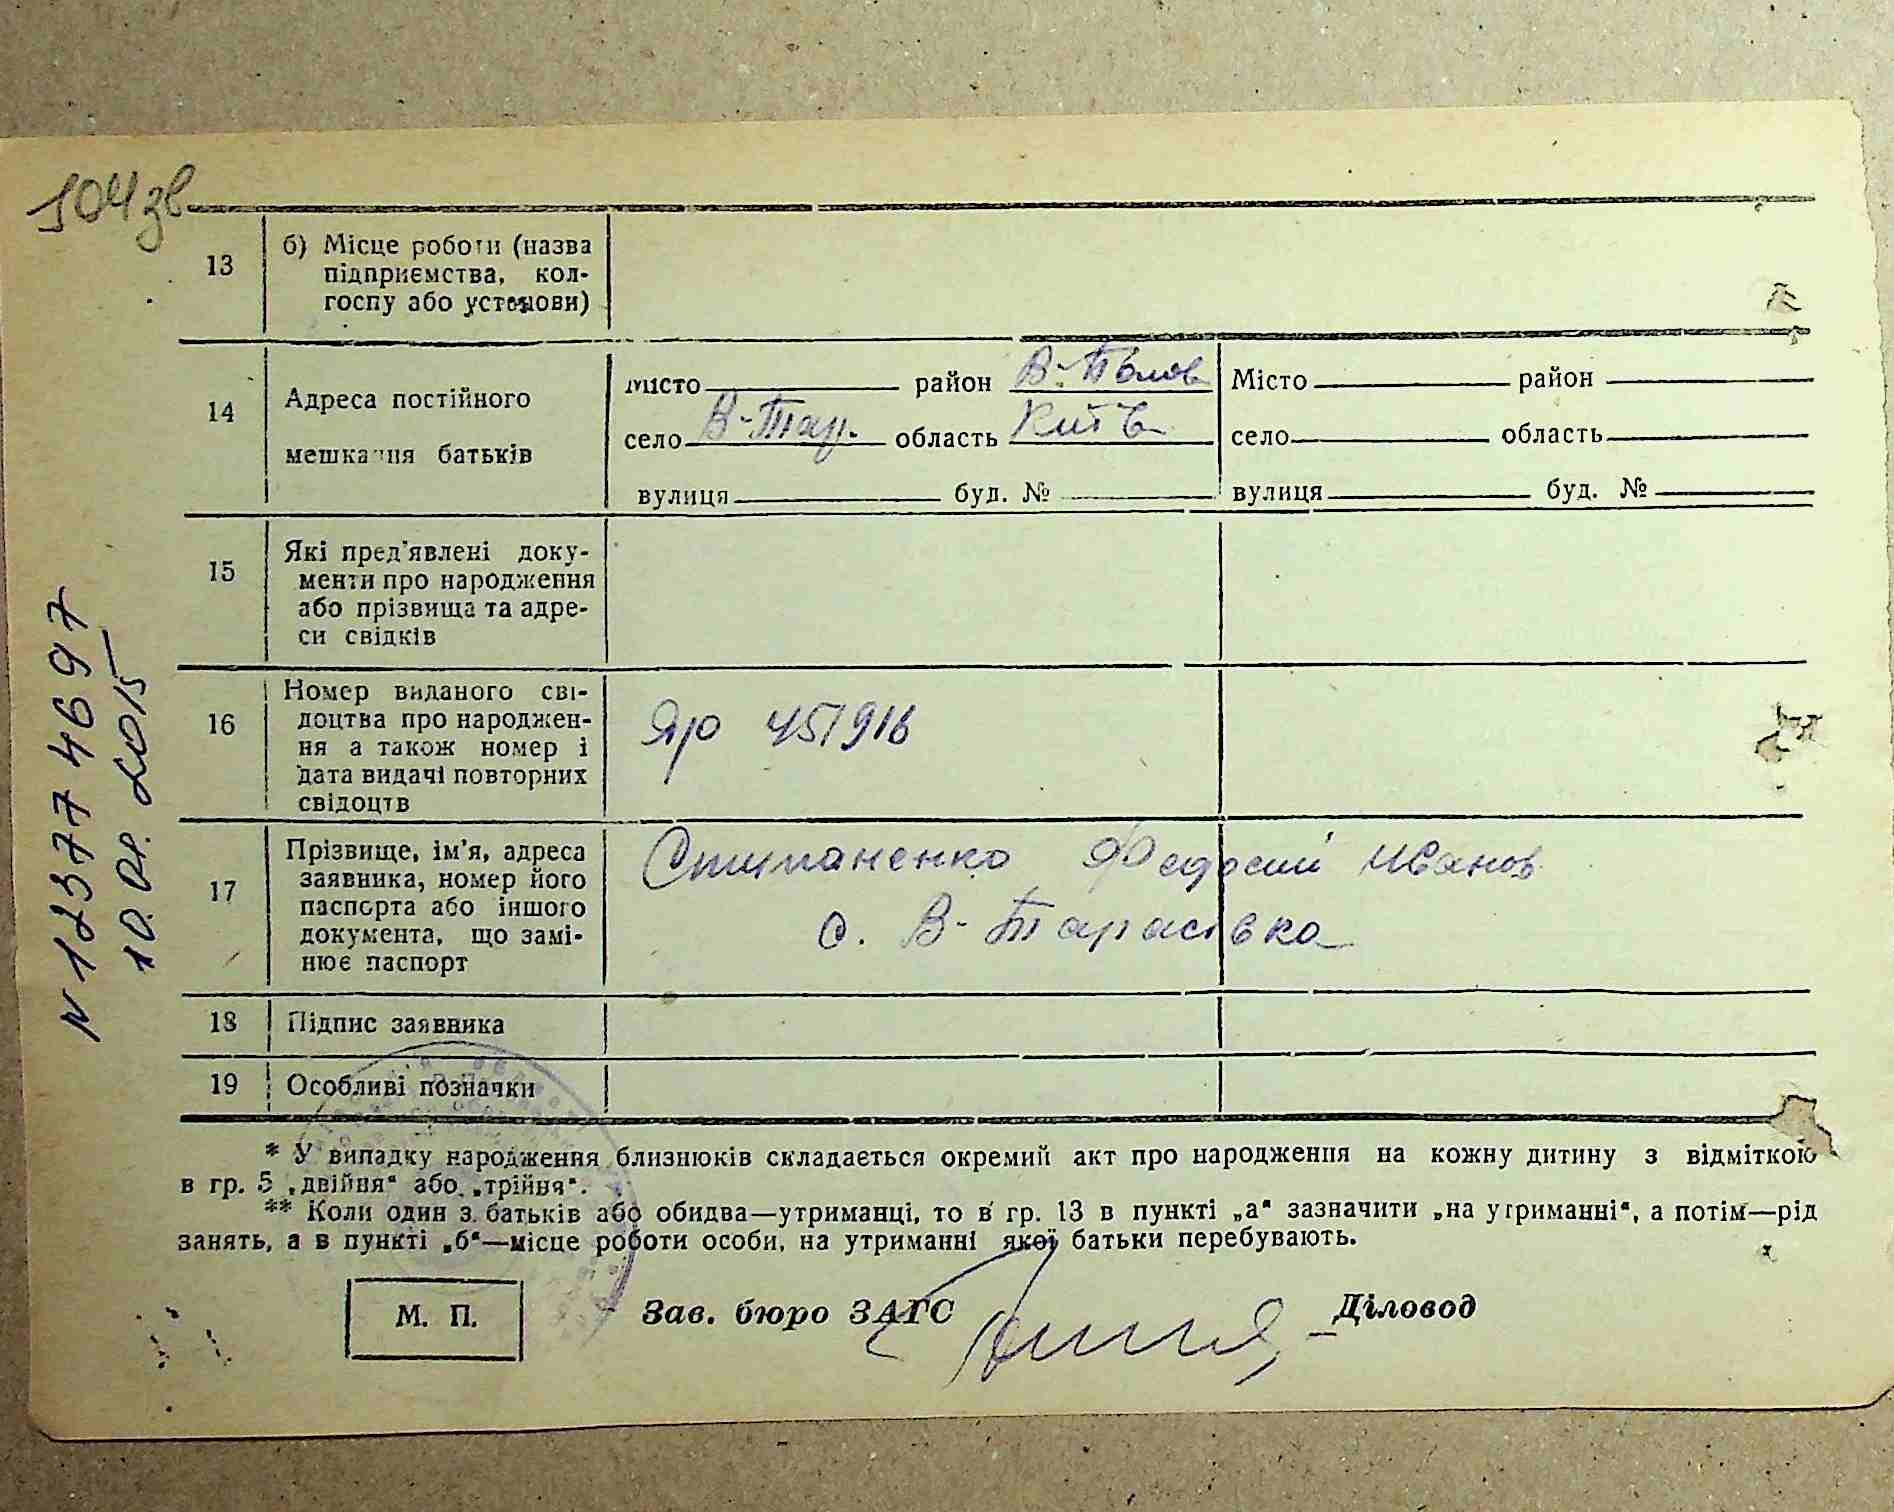 504зв
13
б) Місце роботи (назва
підприємства, кол-
госпу або установи)
14
Адреса постійного
мешкання батьків
місто район В-Полов
село В-Тар. область Київ
вулиця буд. №
Місто район
село область
вулиця буд. №
15
Які пред'явлені доку-
менти про народження
або прізвища та адре-
си свідків
16
Номер виданого сві-
доцтва про народжен-
ня а також номер і
дата видачі повторних
свідоцтв
Яр 451916
17
Прізвище, ім'я, адреса
заявника, номер його
паспорта або іншого
документа, що замі-
нює паспорт
Степаненко Федосий Иванов
с. В-Тарасівка
18
Підпис заявника
19
Особливі позначки
* У випадку народження близнюків складається окремий акт про народження на кожну дитину з відміткою
в гр. 5 „двійня“ або „трійня“.
** Коли один з батьків або обидва—утриманці, то в гр. 13 в пункті „а“ зазначити „на утриманні“, а потім—рід
занять, а в пункті „б“—місце роботи особи, на утриманні якої батьки перебувають.
М. П.
Зав. бюро ЗАГС
Діловод
N 12377 4697
10.01.2015